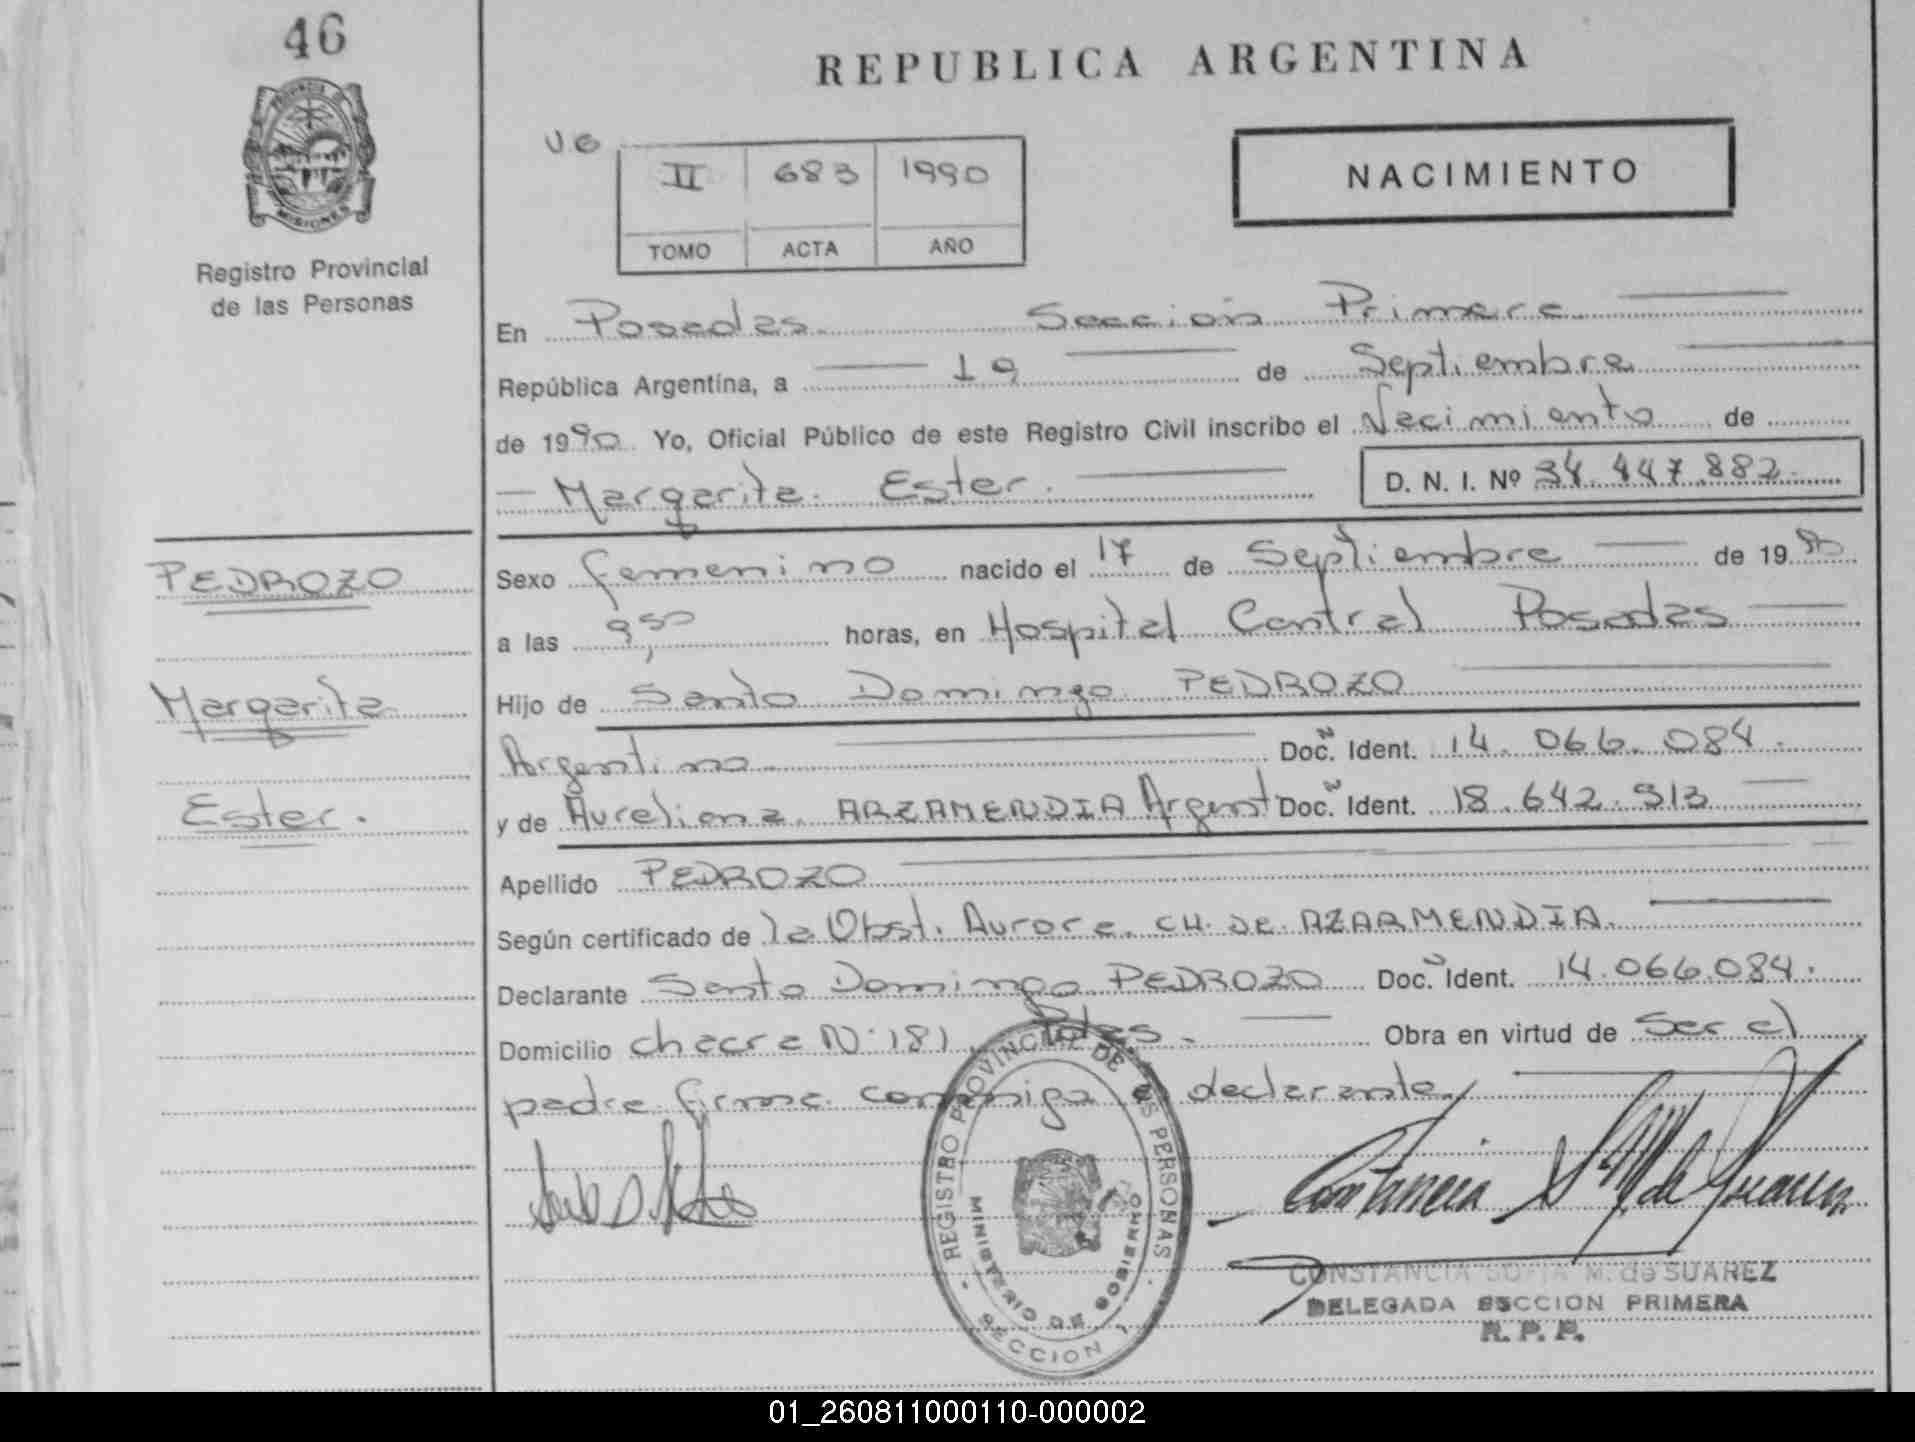 46
REPUBLICA ARGENTINA
PROVINCIA DE
MISIONES
Registro Provincial
de las Personas
V.6
II 683 1990
TOMO ACTA AÑO
NACIMIENTO
En Posadas Sección Primera
República Argentina, a 19 de Septiembre
de 1990 Yo, Oficial Público de este Registro Civil inscribo el Nacimiento de
Margarita Ester. D. N. I. Nº 34.447.882.
PEDROZO
Margarita
Ester.
Sexo femenino nacido el 17 de Septiembre de 1990
a las 9,50 horas, en Hospital Central Posadas
Hijo de Santo Domingo PEDROZO
Argentino Doc. Ident. 14.066.084.
y de Aureliana ARZAMENDIA Argent Doc. Ident. 18.642.913
Apellido PEDROZO
Según certificado de la Obst. Aurora CH. DE AZARMENDIA.
Declarante Santo Domingo PEDROZO Doc. Ident. 14.066.084.
Domicilio chacra N: 181, Pdas. Obra en virtud de Ser el
padre firma conmigo el declarante.
REGISTRO PROVINCIAL DE LAS PERSONAS
MINISTERIO DE GOBIERNO
SECCION 1
CONSTANCIA SOFIA M. de SUAREZ
DELEGADA SECCION PRIMERA
R. P. P.
01_260811000110-000002